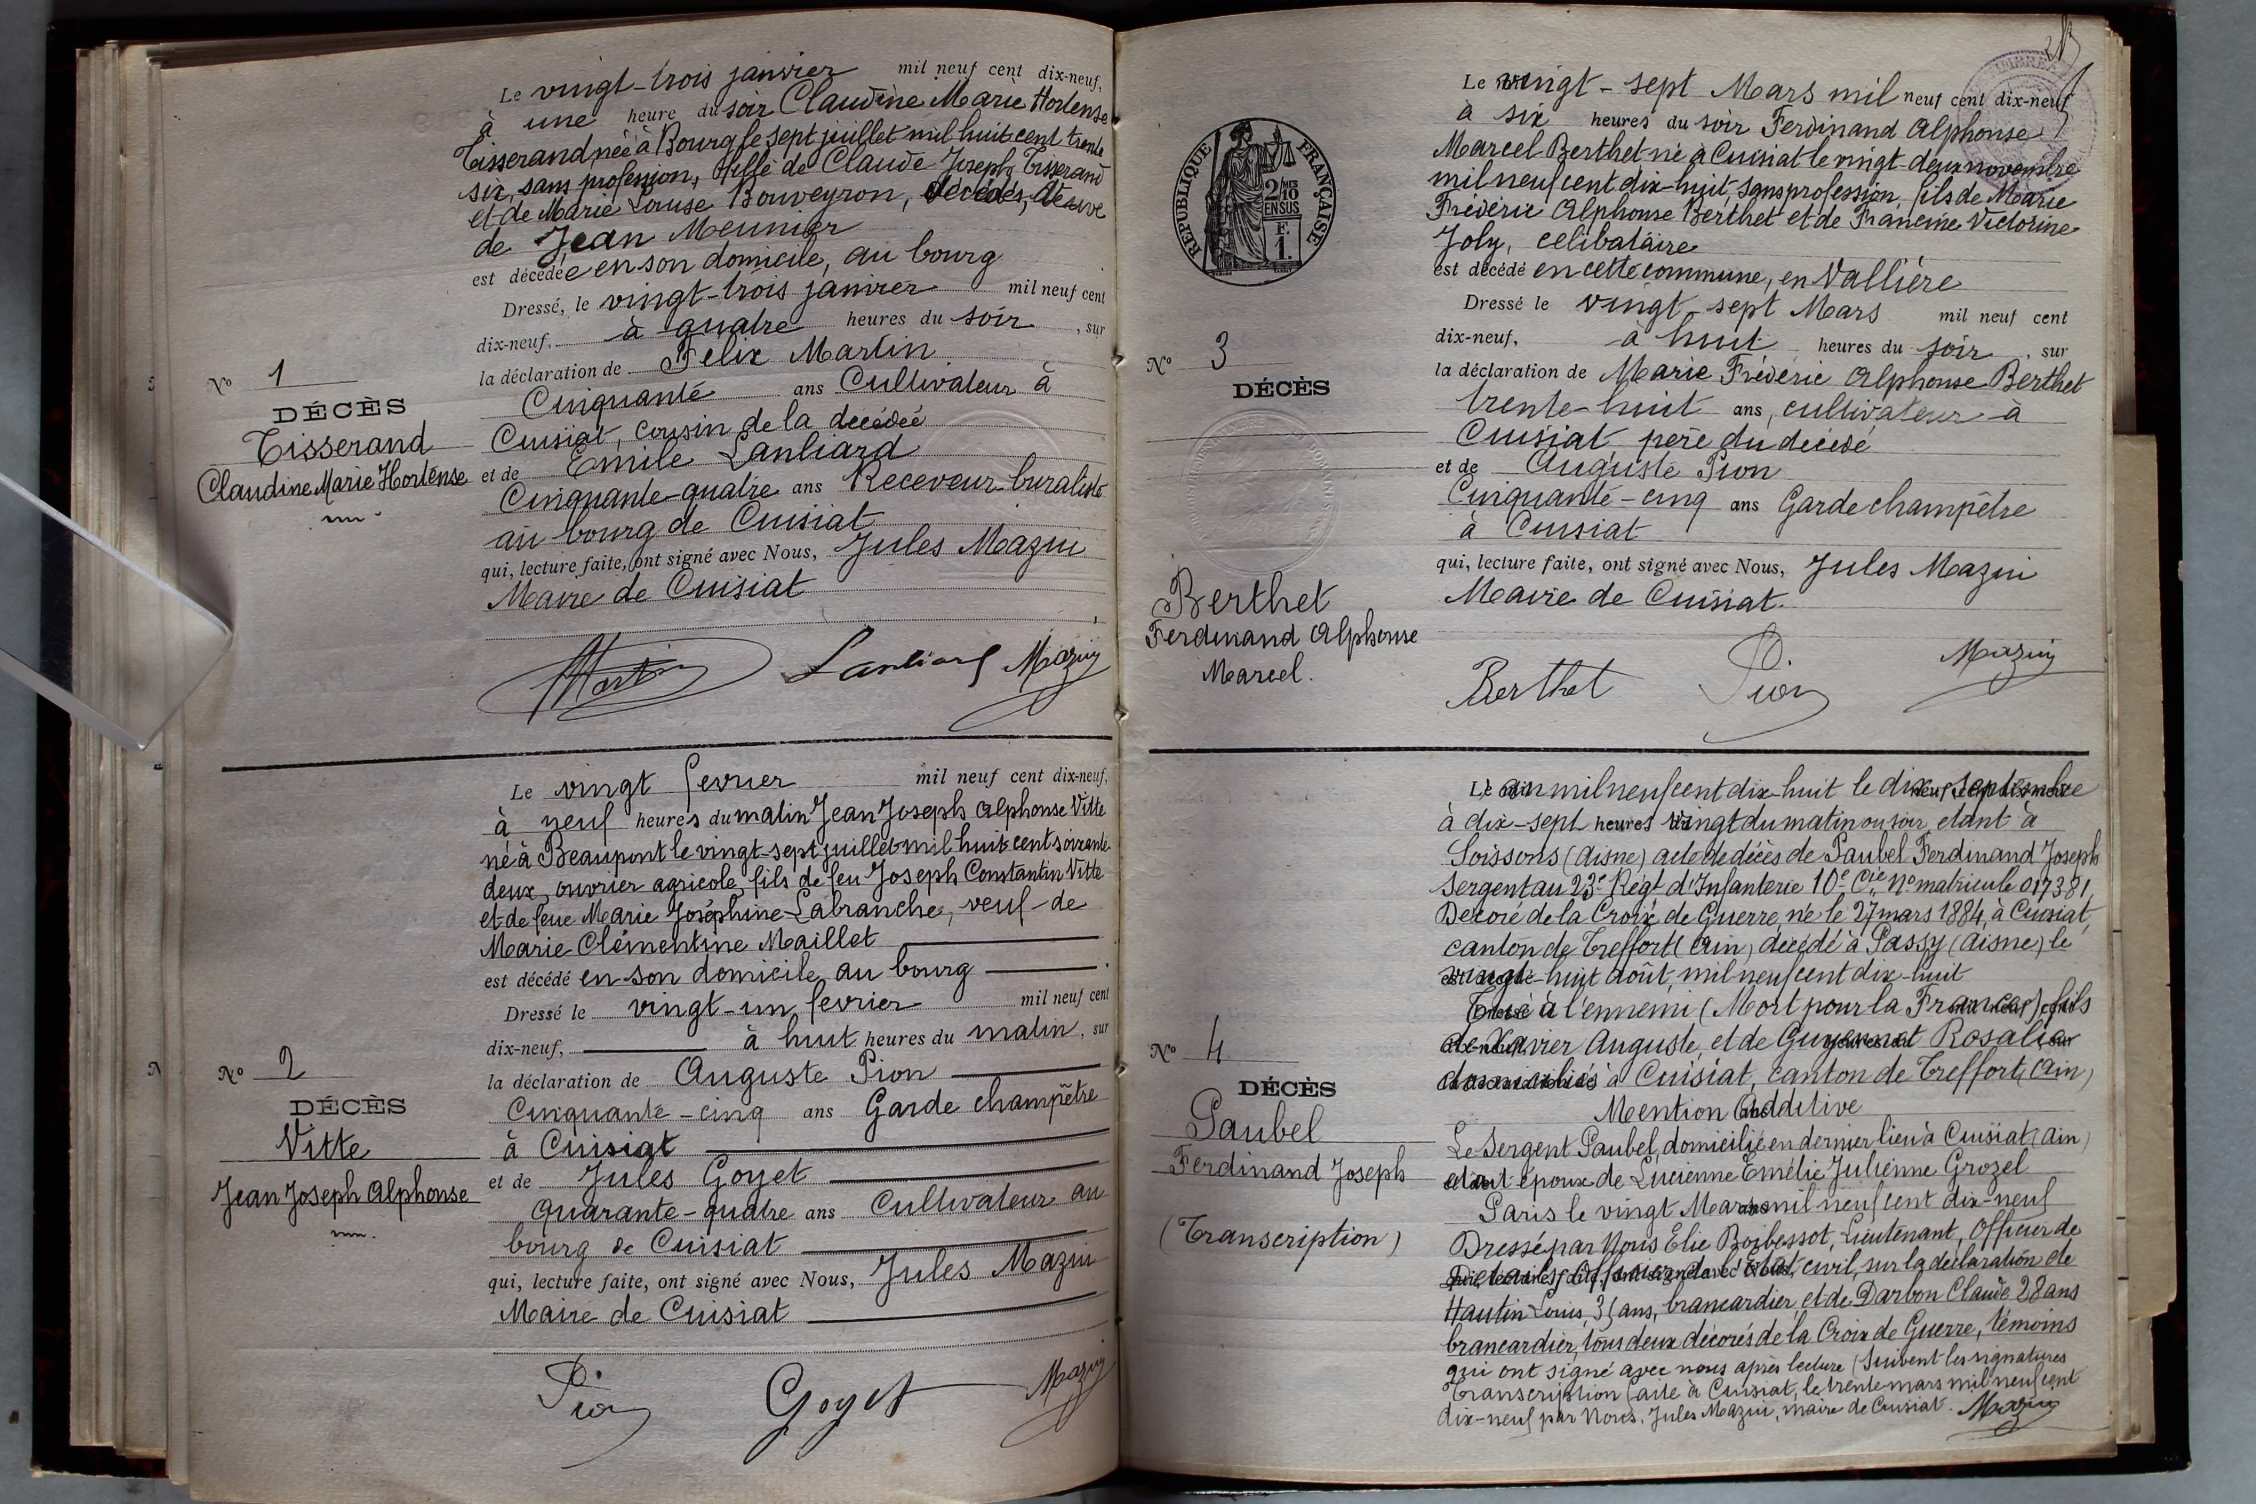 Le vingt-trois janvier mil neuf cent dix-neuf,
à une heure du soir Claudine Marie Hortense
Tisserand née à Bourg le sept juillet mil huit cent trente
six, sans profession, fille de Claude Joseph Tisserand
et de Marie Louise Bouveyron, décédés, veuve
de Jean Meunier
est décédée en son domicile, au bourg
Dressé, le vingt-trois janvier mil neuf cent
dix-neuf, à quatre heures du soir, sur
la déclaration de Félix Martin
Cinquante ans Cultivateur à
Cuisiat, cousin de la decédée
et de Emile Lanliard
Cinquante-quatre ans Receveur buraliste
au bourg de Cuisiat
qui, lecture faite, ont signé avec Nous, Jules Mazui
Maire de Cuisiat
Martin Lanliard Mazuy
No 1
DÉCÈS
Tisserand
Claudine Marie Hortense
Le vingt fevrier mil neuf cent dix-neuf,
à neuf heures du matin Jean Joseph Alphonse Vitte
né à Beaupont le vingt-sept juillet mil huit cent soixante
deux, ouvrier agricole, fils de feu Joseph Constantin Vitte
et de feue Marie Joséphine Labranche, veuf de
Marie Clémentine Maillet
est décédé en son domicile au bourg
Dressé le vingt-un fevrier mil neuf cent
dix-neuf, à huit heures du matin, sur
la déclaration de Auguste Pion
Cinquante-cinq ans Garde champêtre
à Cuisiat
et de Jules Goyet
quarante-quatre ans Cultivateur au
bourg de Cuisiat
qui, lecture faite, ont signé avec Nous, Jules Mazui
Maire de Cuisiat
Pion Goyet Mazuy
No 2
DÉCÈS
Vitte
Jean Joseph Alphonse
RÉPUBLIQUE FRANÇAISE
2/10
EN SUS
F.
1.
Le vingt-sept Mars mil neuf cent dix-neuf
à six heures du soir Ferdinand Alphonse
Marcel Berthet né à Cuisiat le vingt deux novembre
mil neuf cent dix-huit, sans profession, fils de Marie
Frédéric Alphonse Berthet et de Francine Victorine
Joly, celibataire
est décédé en cette commune, en Vallière
Dressé le vingt-sept Mars mil neuf cent
dix-neuf, à huit heures du soir, sur
la déclaration de Marie Frédéric Alphonse Berthet
trente-huit ans, cultivateur à
Cuisiat père du decédé
et de Auguste Pion
Cinquante-cinq ans Garde champêtre
à Cuisiat
qui, lecture faite, ont signé avec Nous, Jules Mazui
Maire de Cuisiat.
Berthet Pion Mazuy
No 3
DÉCÈS
Berthet
Ferdinand Alphonse
Marcel.
L'an mil neuf cent dix-huit le dix septembre
à dix-sept heures vingt du matin ou soir, étant à
Soissons (Aisne) acte de décès de Paubel Ferdinand Joseph
Sergent au 23e Régt d'Infanterie 10e Cie No matricule 017381,
Décoré de la Croix de Guerre, né le 27 mars 1884, à Cuisiat,
canton de Treffort (Ain) décédé à Passy (Aisne) le
vingt-huit août, mil neuf cent dix-huit
Tué à l'ennemi (Mort pour la France) fils
de Xavier Auguste, et de Guyennet Rosalie
domiciliés à Cuisiat, canton de Treffort (Ain)
Mention Additive
Le Sergent Paubel, domicilié en dernier lieu à Cuisiat (Ain)
était époux de Lucienne Emélie Julienne Grozel
Paris le vingt Mars mil neuf cent dix-neuf
Dressé par Nous Elie Boibessot, Lieutenant, Officier de
Détails, Officier de l'Etat civil, sur la déclaration de
Hautin Louis, ans, brancardier, et de Darbon Claude 28 ans
brancardier, tous deux décorés de la Croix de Guerre, témoins
qui ont signé avec nous après lecture (Suivent les signatures
Transcription faite à Cuisiat, le trente mars mil neuf cent
dix-neuf par Nous, Jules Mazui, maire de Cuisiat. Mazuy
No 4
DÉCÈS
Paubel
Ferdinand Joseph
(Transcription)